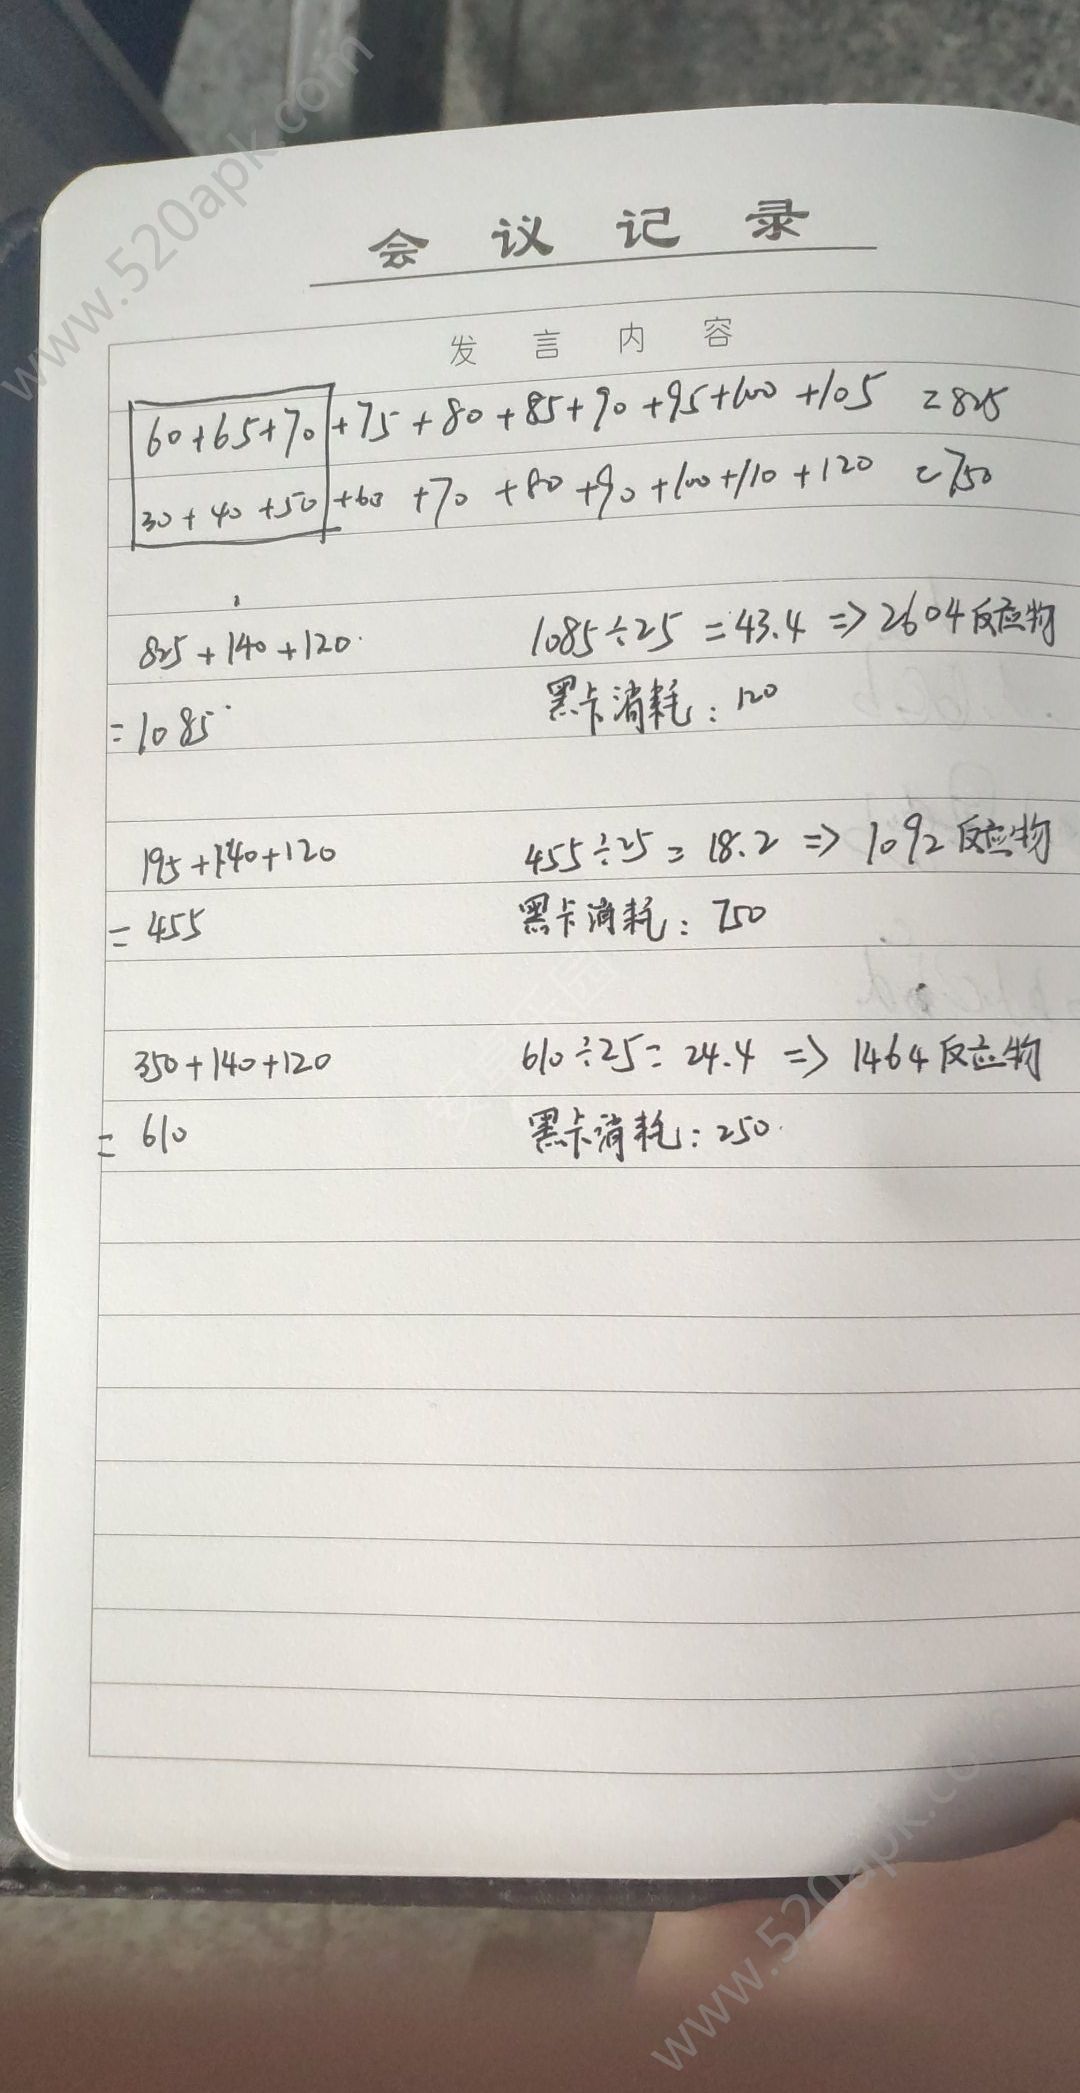 www.520apk.com
会议记录
发言内容
60+65+70+75+80+85+90+95+100+105 =825
30+40+50+60+70+80+90+100+110+120 =750
825+140+120 1085÷25=43.4 => 2604反应物
=1085 黑卡消耗:120
195+140+120 455÷25=18.2 => 1092反应物
=455 黑卡消耗:750
350+140+120 610÷25=24.4 => 1464反应物
=610 黑卡消耗:250
www.520apk.co